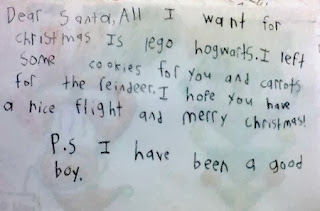 Dear Santa, All I want for
christmas Is lego hogwarts. I left
some cookies for you and carrots
for the reindeer. I hope you have
a nice flight and merry christmas!
P.S I have been a good
boy.